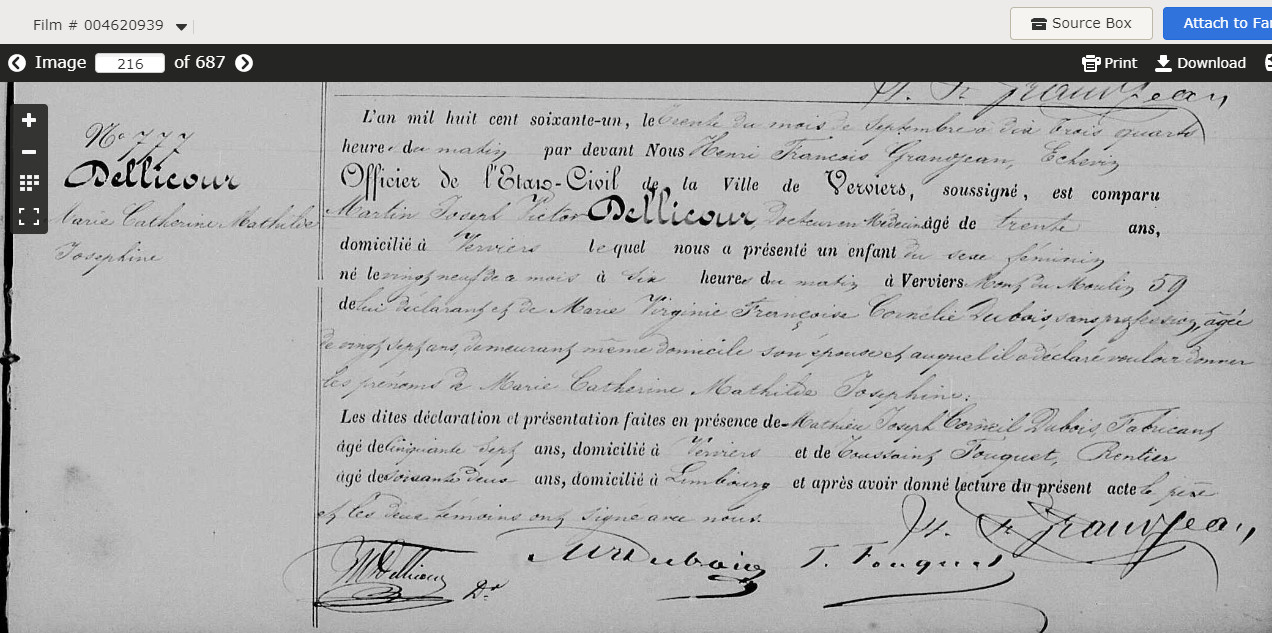 Film # 004620939
Source Box
Attach to Fa
Image 216 of 687
Print
Download
H. Fr Grandjean
N° 777
Dellicour
Marie Catherine Mathilde
Josephine
L'an mil huit cent soixante-un, le trente du mois de Septembre à dix trois quarts
heures du matin par devant Nous Henri François Grandjean, Echevin
Officier de l'Etat-Civil de la Ville de Verviers, soussigné, est comparu
Martin Joseph Victor Dellicour, Docteur en Médecine âgé de trente ans,
domicilié à Verviers lequel nous a présenté un enfant du sexe féminin
né le vingt neuf de ce mois à six heures du matin à Verviers Mont du Moulin 59
de lui déclarant et de Marie Virginie Françoise Cornélie Dubois, sans profession, âgée
de vingt sept ans, demeurant même domicile son épouse et auquel il a déclaré vouloir donner
les prénoms de Marie Catherine Mathilde Josephine.
Les dites déclaration et présentation faites en présence de Mathieu Joseph Corneil Dubois, Fabricant
âgé de cinquante sept ans, domicilié à Verviers et de Toussaint Fouguet, Rentier
âgé de soixante deux ans, domicilié à Limbourg et après avoir donné lecture du présent acte le père
et les deux témoins ont signé avec nous.
H. Fr Grandjean
MDellicour Dr
Dubois
T. Fouguet